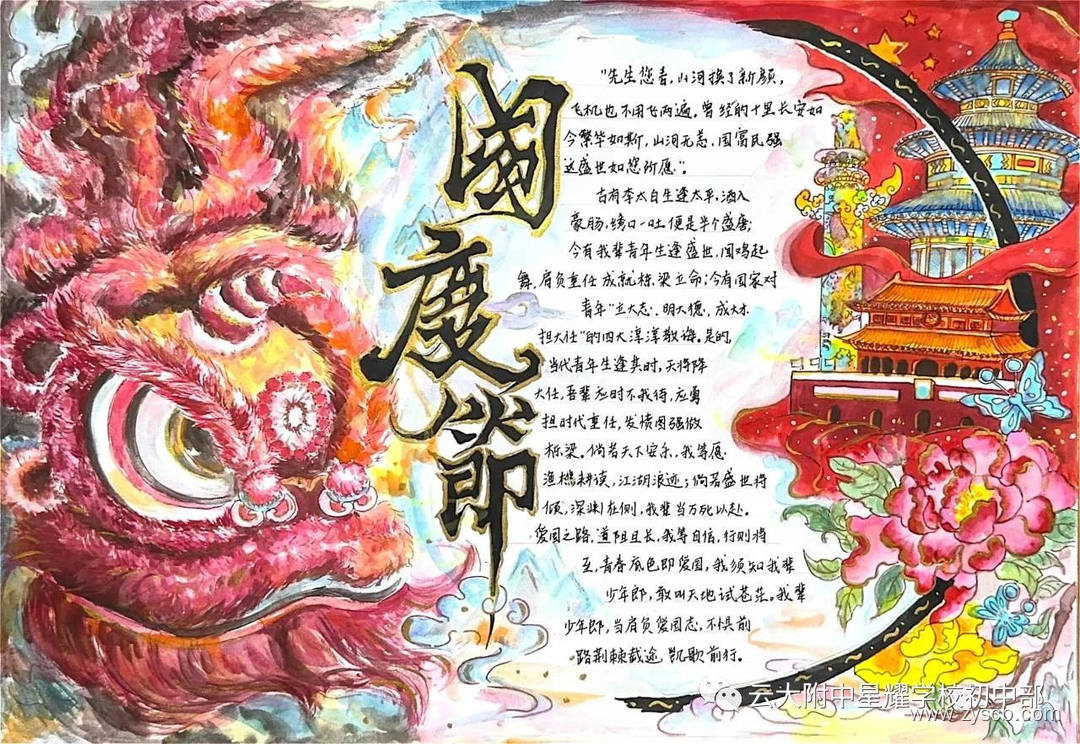 國慶節
"先生您看,山河换了新颜,
飞机也不用飞两遍。曾经的十里长安如
今繁华如斯,山河无恙,国富民强
这盛世如您所愿"。
古有李太白生逢太平,酒入
豪肠,绣口一吐,便是半个盛唐;
今有我辈青年生逢盛世,闻鸡起
舞,肩负重任,成就栋梁立命;今有国家对
青年"立大志、明大德、成大才
担大任"的四大淳淳教诲。是的
当代青年生逢其时,天将降
大任,吾辈应时不我待,应勇
担时代重任,发愤图强做
栋梁。倘若天下安乐,我等愿
渔樵耕读,江湖浪迹;倘若盛世将
倾,深渊在侧,我辈当万死以赴。
爱国之路,道阻且长,我等自信,行则将
至,青春底色即爱国,我须知我辈
少年郎,敢叫天地试苍茫。我辈
少年郎,当肩负爱国志,不惧前
路荆棘截途,凯歌前行。
云大附中星耀学校初中部
www.zyscb.com